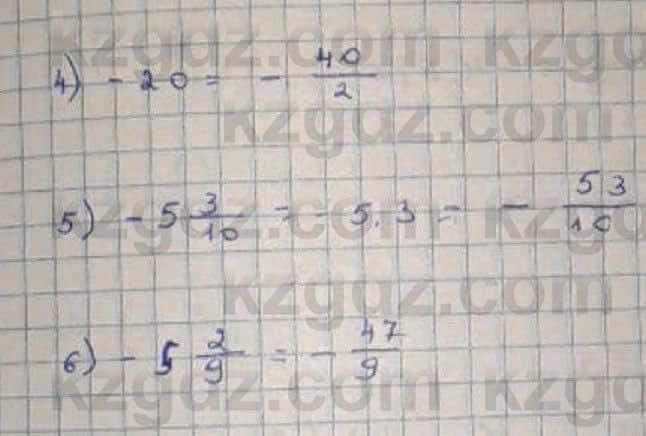 kzgdz.com kzgdz.com
4) - 20 = - 40/2
kzgdz.com
5) - 5 3/10 = - 5.3 = - 53/10
kzgdz.com
6) - 5 2/9 = - 47/9
kzgdz.com